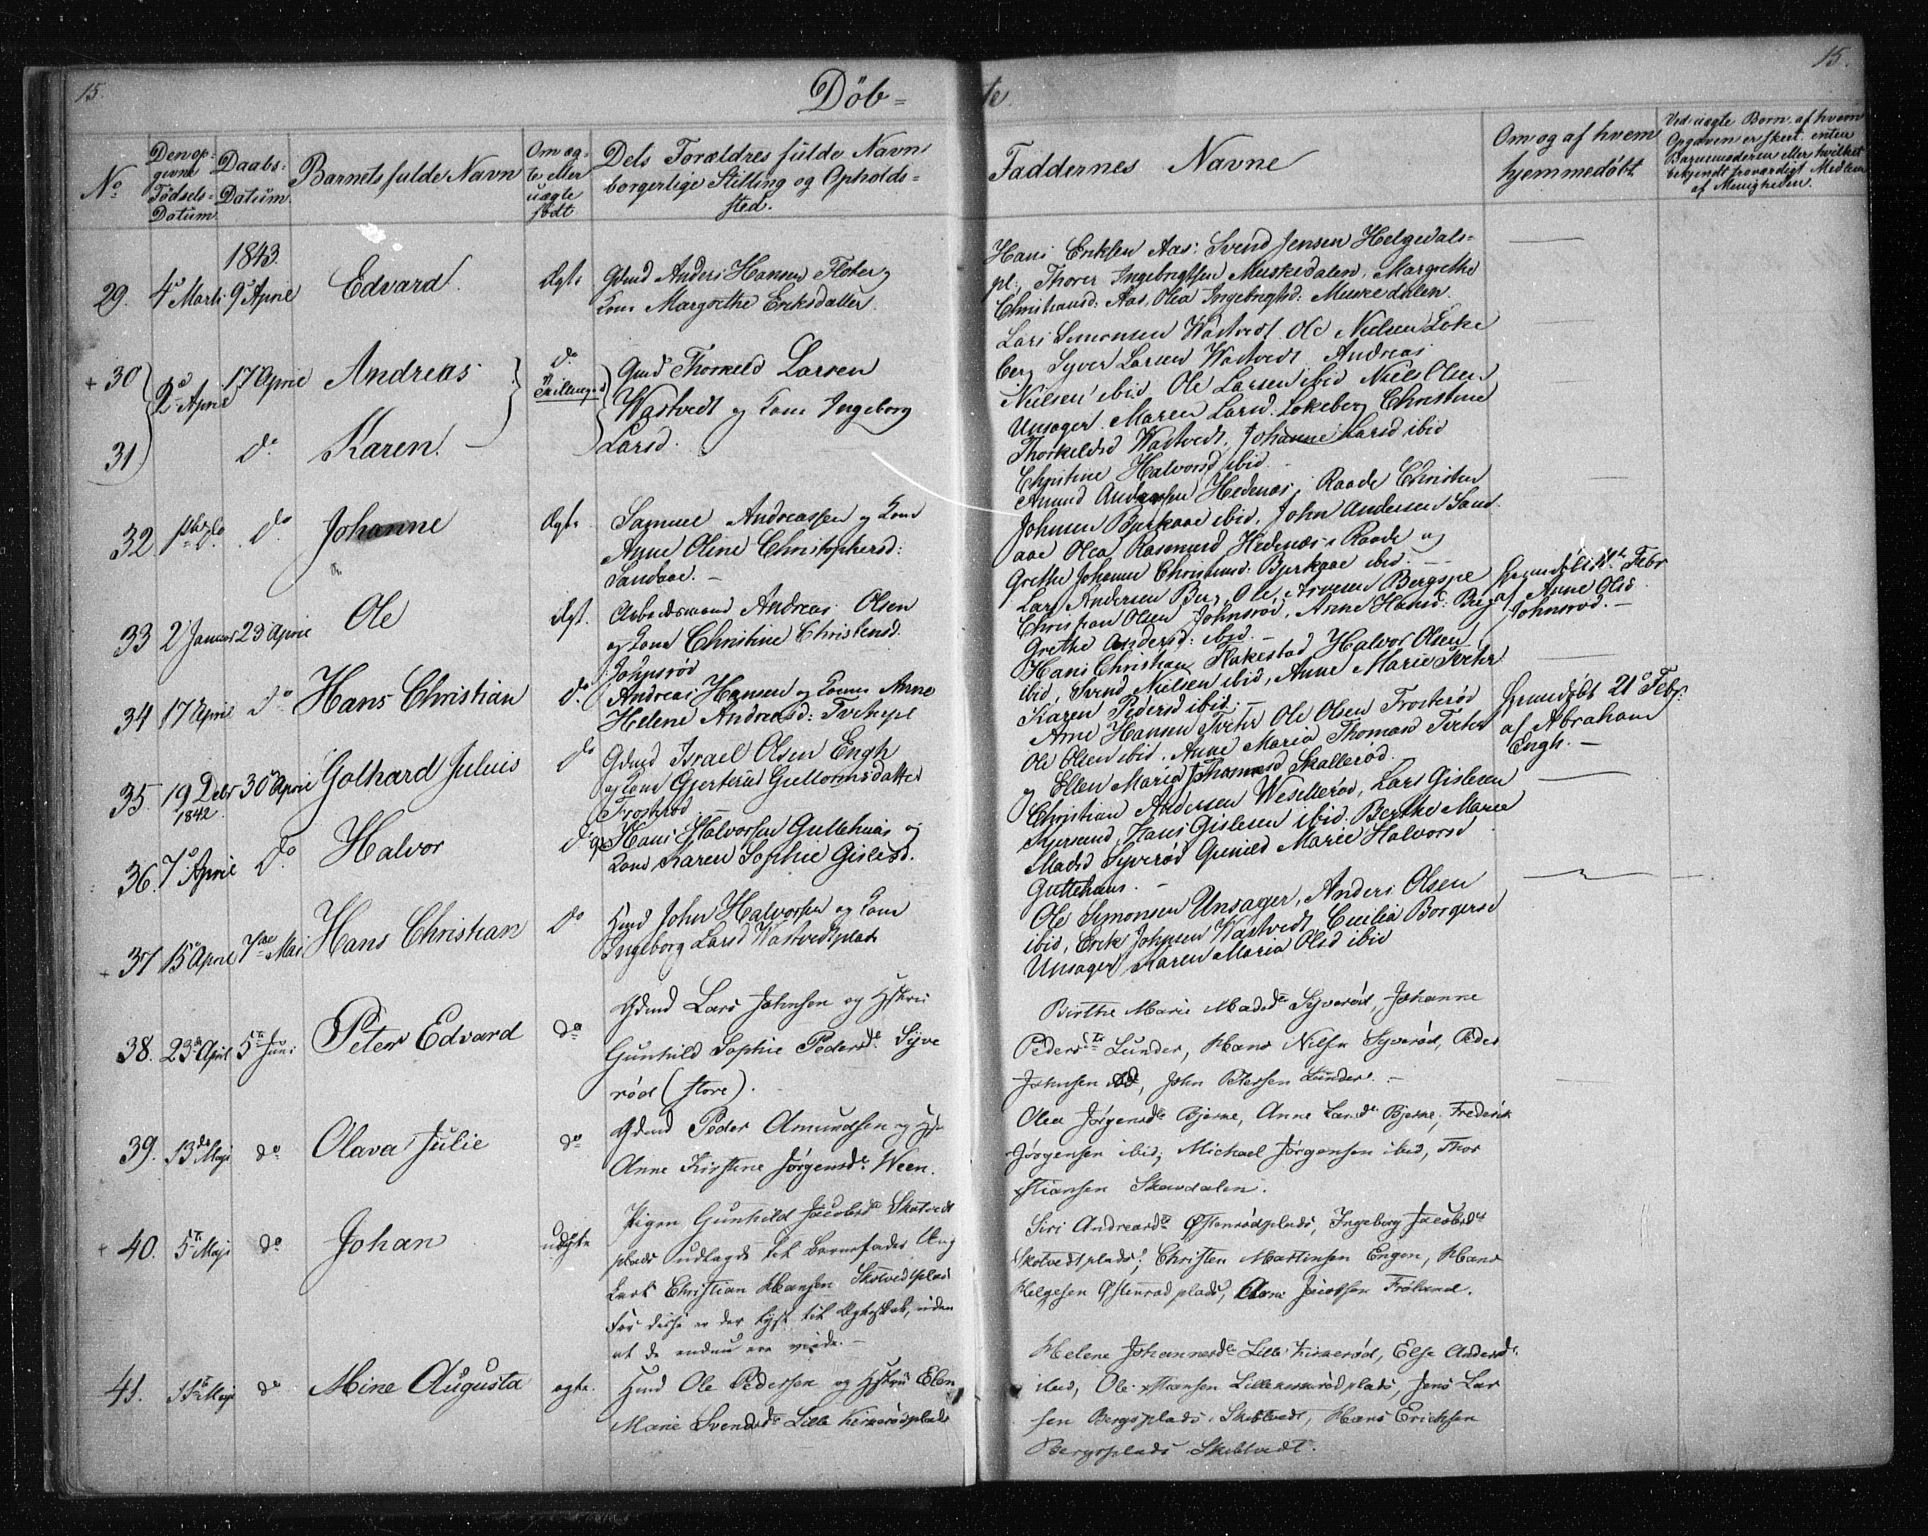 15.
Döb=
te
15.
No
Den op-
givne
Födsels-
Datum.
Daabs-
Datum.
Barnets fulde Navn
Om æg-
te eller
uægte
födt.
Dets Forældres fulde Navn,
borgerlige Stilling og Opholds-
sted.
Faddernes Navne
Om og af hvem
hjemmedøbt
Ved uægte Børn, af hvem
Opgaven er skeet, enten
Barnemoderen eller hvilket
bekjendt troværdigt Medlem
af Menigheden.
1843.
29. 4de Marti 9de April Edvard. Ægte
Gdmd Anders Hansen Floter og
Kone Margrethe Eriksdatter.
Hans Eriksen Aas, Svend Jensen Helgedals-
pl., Thorer Ingebrigtsen Muskedalen, Margrethe
Christiansd: Aas, Olea Ingebrigtsd: Muskedalen.
+ 30 2de April 17 April Andreas do Tvillinger
31) do Karen.
Gmd Thorkeld Larsen
Wastvedt og Kone Ingeborg
Larsd.
Lars Simonsen Wastvedt Ole Nielsen Loke
berg Syver Larsen Wastvedt Andreas
Nielsen ibid Ole Larsen ibid Niels Olsen
Unsager. Maren Larsd. Lokeberg Christine
Thorkeldsd Wastvedt, Johanne Larsd ibid
Christine Halvorsd ibid.
32 do. Johanne Ægte.
Samuel Andreassen og Kone
Anne Oline Christophersd:
Sandaae. -
Amund Andersen Hedenæs, Raade Christen
Johnsen Bjerkaae ibid, John Andersen Sand
aae Olea Rasmusd Hedenæs i Raade og
Grethe Johanne Christensd: Bjerkaae ibid. -
33 2 Januar 23 April Ole Ægt.
Arbeidsmand Andreas Olsen
og Kone Christine Christensd.
Johnsrød
Lars Andersen Berg, Ole Iversen Bergspl
Christian Olsen Johnsrød, Anne Hansd: Berg
Grethe Andersd: ibid. -
Hjemdöbt 11te Febr
af Anne Olsd
Johnsrød. -
34 17 April do. Hans Christian do.
Andreas Hansen og Kone Anne
Helene Andreasd: Tvetepl
Hans Christian Flakestad Halvor Olsen
ibid, Svend Nielsen ibid, Anne Marie Tveter
Karen Pedersd ibid. -
35. 19 Debr 1842. 30 April Gothard Julius do
Gdmd Israel Olsen Engh
og Kone Gjerterud Guttormsdatter
Frosterød
Arne Hansen Tveter Ole Olsen Frosterød
Ole Olsen ibid. Anne Maria Thomasd Tveter
og Ellen Maria Thomasd Skallerød.
Hjemdöbt 21de Febr.
af Abraham
Engh. -
36. 7de April do. Halvor do
Hans Halvorsen Guttehuus og
Kone Karen Sophie Gislesd.
Christian Andersen Wesellerød, Lars Gislesen
Hans Gislesen ibid. Berthe Marie
Madsd Syverød Gunild Marie Halvorsd
Guttehuus. -
+ 37 15de April 7de Mai Hans Christian do
Hmd John Halvorsen og Kone
Ingeborg Larsd Wastvedtplads
Ole Simonsen Unsager, Anders Olsen
ibid, Erik Johnsen Wastvedt Cecilia Borgersd
Unsager Karen Maria Olsd ibid
38. 23de April 5te Juni Peter Edvard do
Gdmd Lars Johnsen og Hstru
Gunhild Sophie Pedersdr. Syve
rød (store).
Birthe Marie Madsdr Syverød, Johanne
Pedersdr Lunder, Hans Nilsen Syverød, Peder
Johnsen ibd, John Petersen Lunder. -
39. 13de Maji do Olava Julie do
Gdmd Peder Amundsen og Hstr
Anne Kirstine Jørgensdr. Ween.
Olea Jørgensdr Bjerke, Anne Larsdr. Bjerke, Frederik
Jørgensen ibid, Michael Jørgensen ibid, Thor
Stiansen Skavdalen.
+ 40. 5te Maji do Johan uægte
Pigen Gunhild Jacobsdr Skotvedt
plads udlagde til Barnefader Ung
karl Christian Hansen Skotvedtplads
For disse er der lyst til Ægteskab, uden
at de endnu ere viede. -
Siri Andreasdr Østenrødplads, Ingeborg Jacobsdr
Skotvedtplads, Christen Martinsen Engen, Hans
Helgesen Østenrødplads, Arne Jacobsen Frøland.
41. 11te Maji do Mine Augusta ægte.
Hmd Ole Pedersen og Hstru Elen
Marie Svendsdr Lille Kirkerødplads
Helene Johannesdr Lille Kirkerød, Else Andersdr.
ibid, Ole Stiansen Lillekirkerødplads, Jens Lar
sen Bergsplads i Skibtvedt, Hans Erichsen
Bergsplads Skibtvedt.